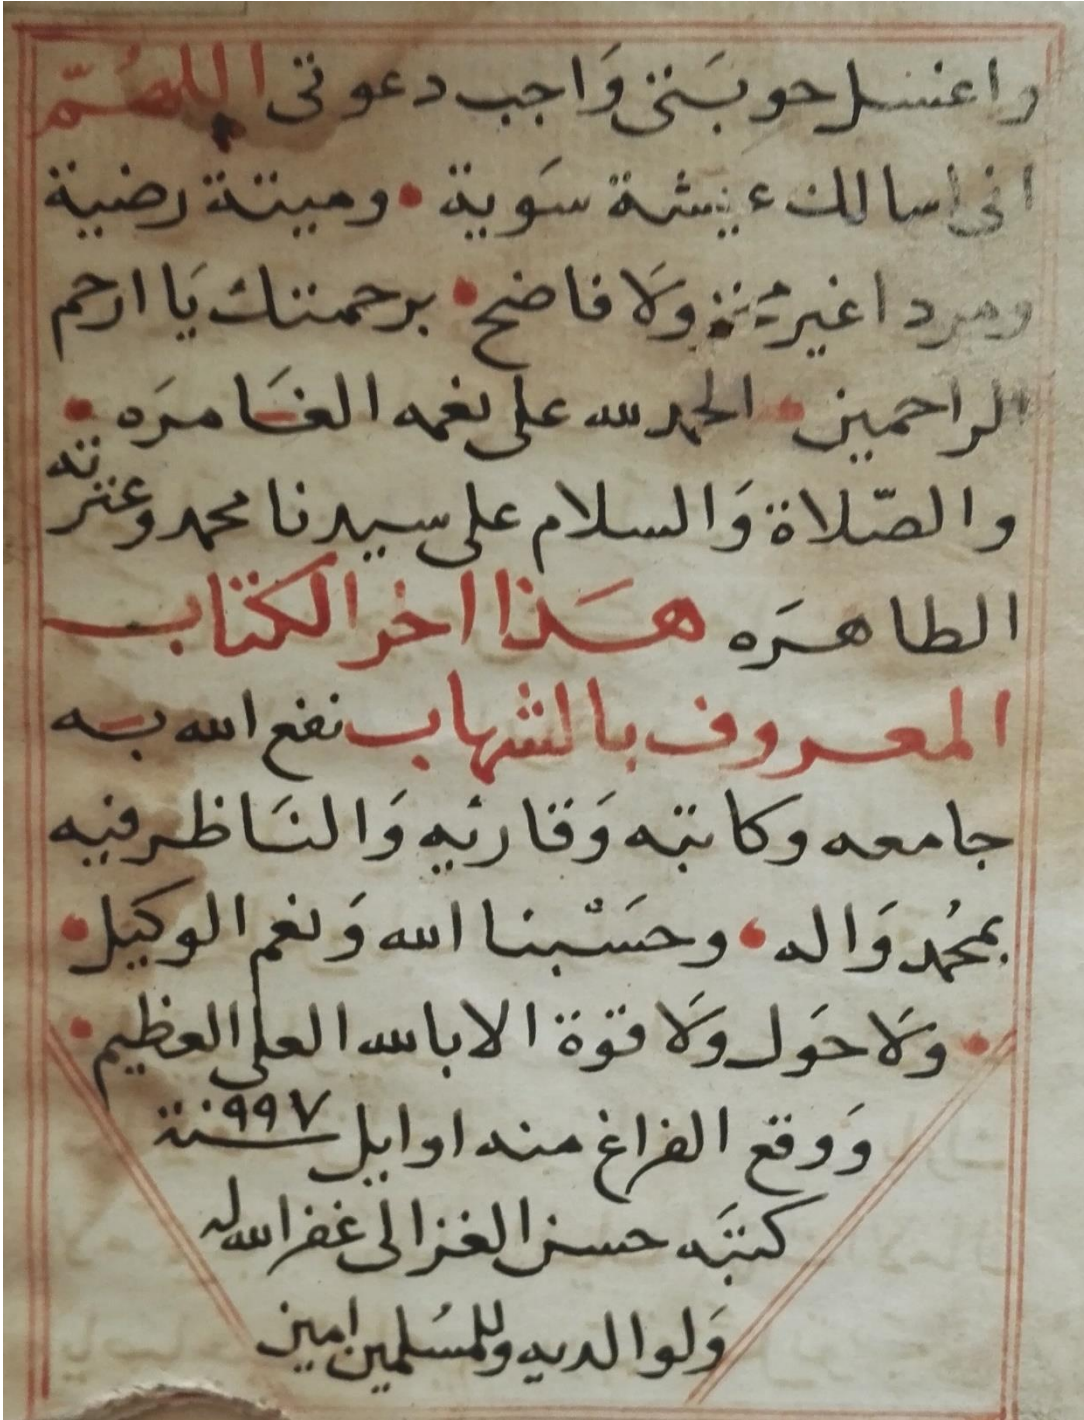 واغسل حوبَتى وَاجب دعوتى اللهُمّ
انى اسالك عيشة سَوية • وميتة رضية
ومردا غير مخز ولَا فاضح • برحمتك يَا ارحم
الراحمين • الحمد لله على نعمه الغَامرَه •
والصّلاة وَالسلام على سيدنا محمد وعترته
الطاهرَه هَذا اخر الكتاب
المعروف بالشهاب نفع الله به
جامعه وكاتبه وَقارئه وَالنَاظر فيه
بمحُمد وَاله • وحَسْبنا الله وَنعم الوكيل •
• ولَا حَول ولَا قوة الا بالله العلى العظيم •
وَوقع الفراغ منه اوايل سنة ٩٩٧
كتبَه حسن الغزالى غفر الله له
وَلوالديه وللمسُلمين امين